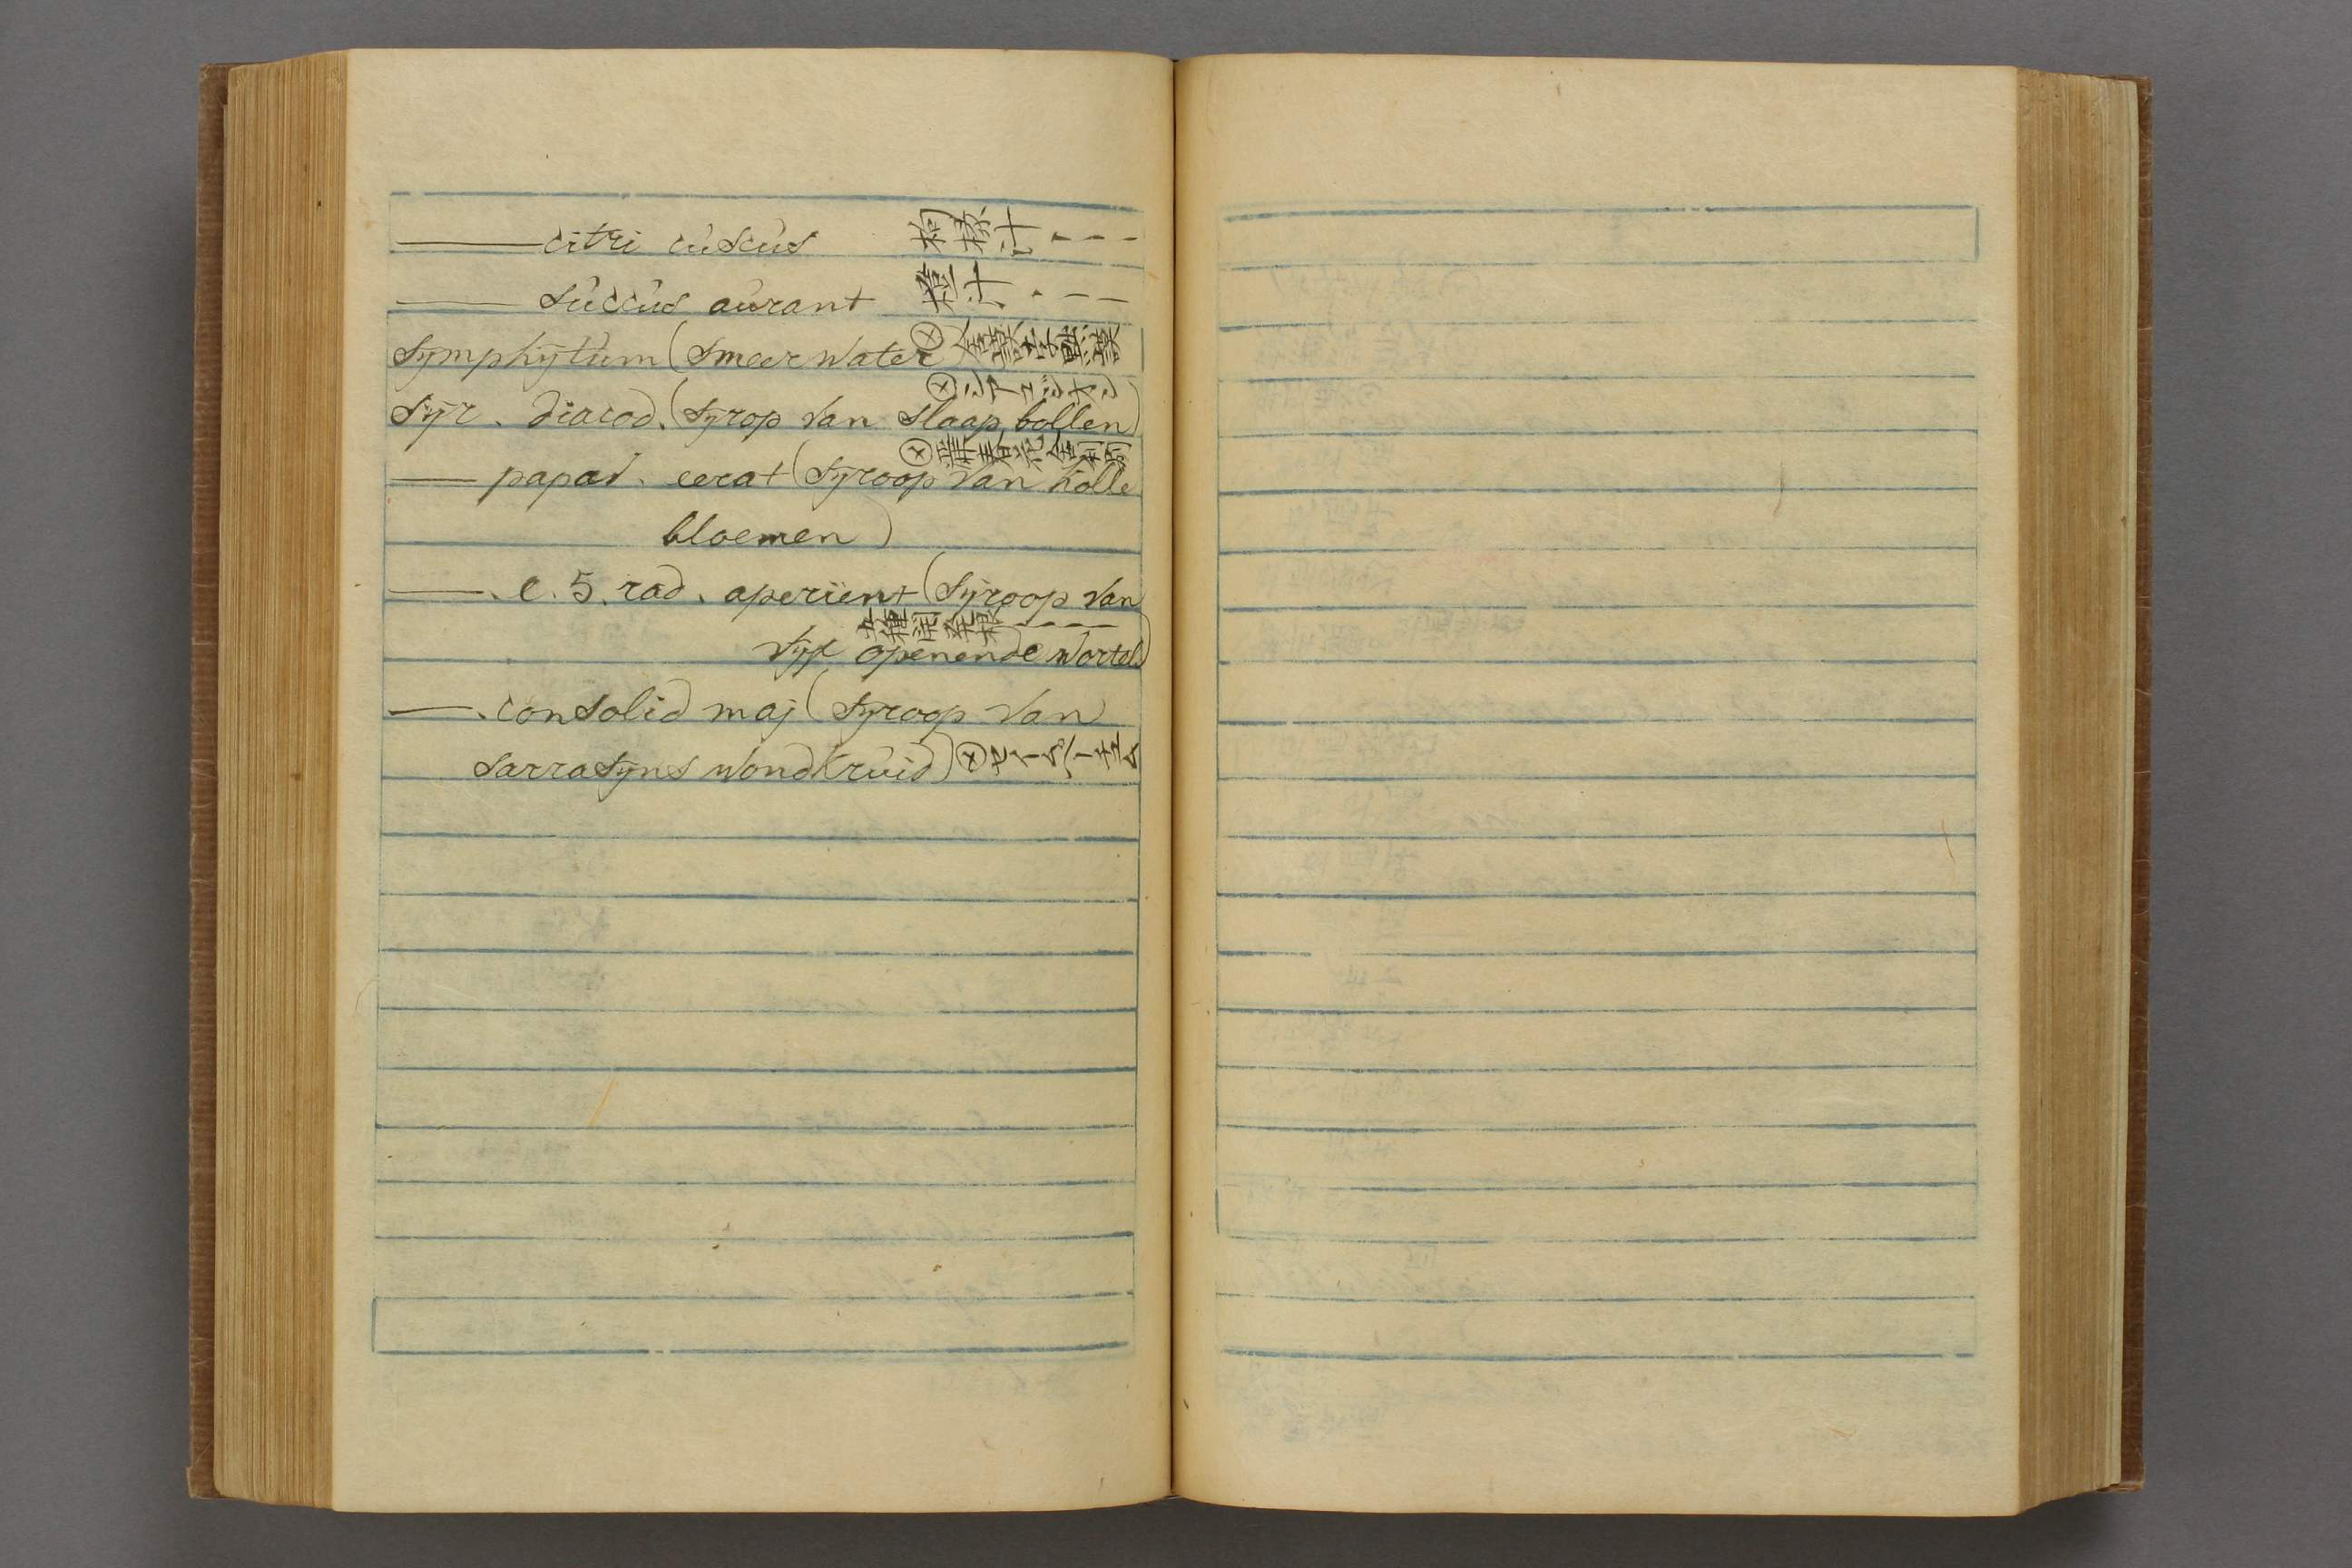 —— citri cúscús 枸櫞汁---
—— súccús aúrant 橙汁・---
Symphÿtúm (Smeer Water ⊗
Sÿr. diacod. (Sÿrop van slaap bollen) ⊗シアコジオン
— papav. eerat (Sÿroop van kolle ⊗罌粟花舎利別
bloemen)
—. e. 5. rad. aperiënt (Sÿroop van
vÿf openende wortels) 五種開達根----
—. consolid maj (Sÿroop van
sarrasÿns wondkrúid) ⊗